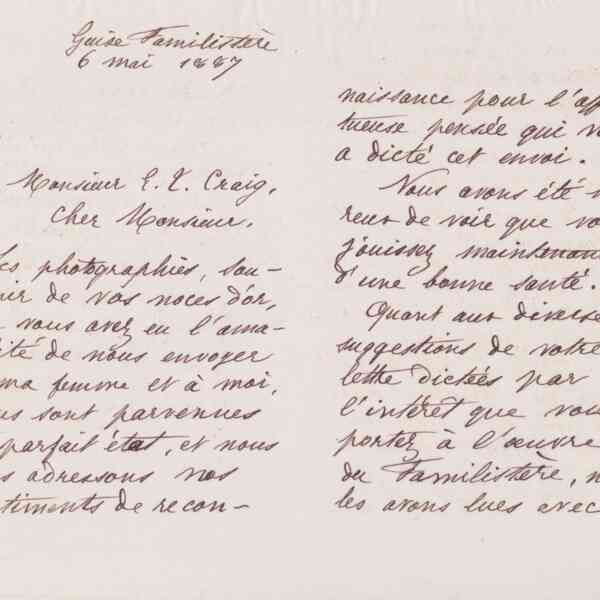 Guise Familistère
6 mai 1887
Monsieur E. T. Craig,
Cher Monsieur,
Les photographies, sou-
nir de vos noces d'or,
vous avez eu l'ama-
ité de nous envoyer
ma femme et à moi,
us sont parvenues
parfait état, et nous
s adressons nos
timents de recon-
naissance pour l'aff
tueuse pensée qui v
a dicté cet envoi.
Nous avons été
reux de voir que vo
jouissez maintenan
d'une bonne santé.
Quant aux diverse
suggestions de votre
lettre dictées par
l'intérêt que vou
portez à l'œuvre
du Familistère, n
les avons lues avec